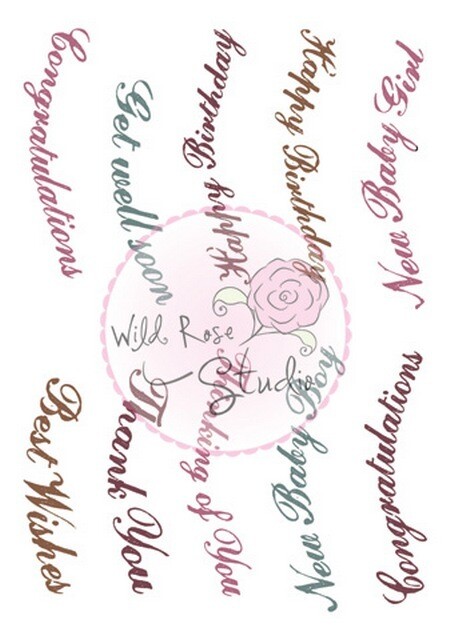 Congratulations
Get well soon
Happy Birthday
Happy Birthday
New Baby Girl
Wild Rose
Studio
Best Wishes
Thank You
Thinking of You
New Baby Boy
Congratulations